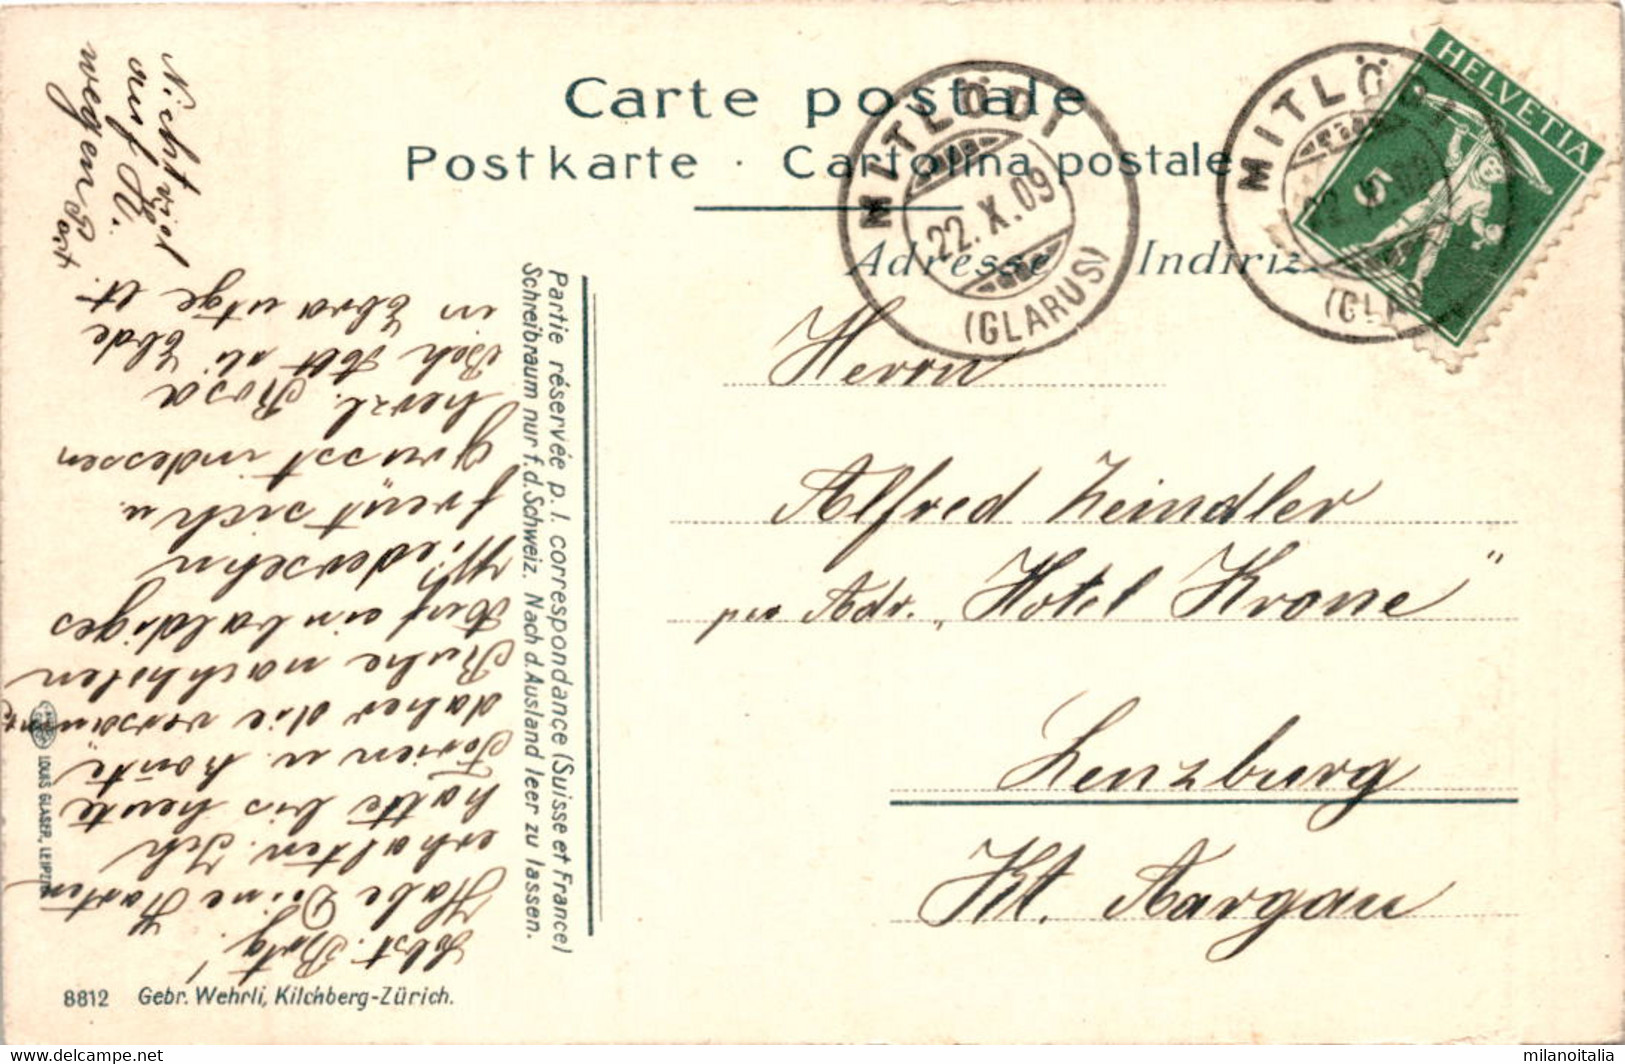 Carte postale
Postkarte · Cartolina postale
Adresse Indiriz
MITLÖDI
22.X.09
(GLARUS)
MITLÖDI
22.X.09
(GLAR
HELVETIA
5
Herrn
Alfred Zeindler
per Adr. „Hotel Krone“
Lenzburg
Kt. Aargau
Partie réservée p. l. correspondance (Suisse et France)
Schreibraum nur f. d. Schweiz. Nach d. Ausland leer zu lassen.
Lbst.
Habe Deine Karten
erhalten. Ich
hatte bis heute
Ferien u. konnte
daher die versäumte
Ruhe nachholen
Auf ein baldiges
Wiedersehn
freut sich u.
grüsst indessen
herzl. Rosa
in
Nicht viel
auf K.
wegen Port
LOUIS GLASER, LEIPZIG
8812 Gebr. Wehrli, Kilchberg-Zürich.
milanoitalia